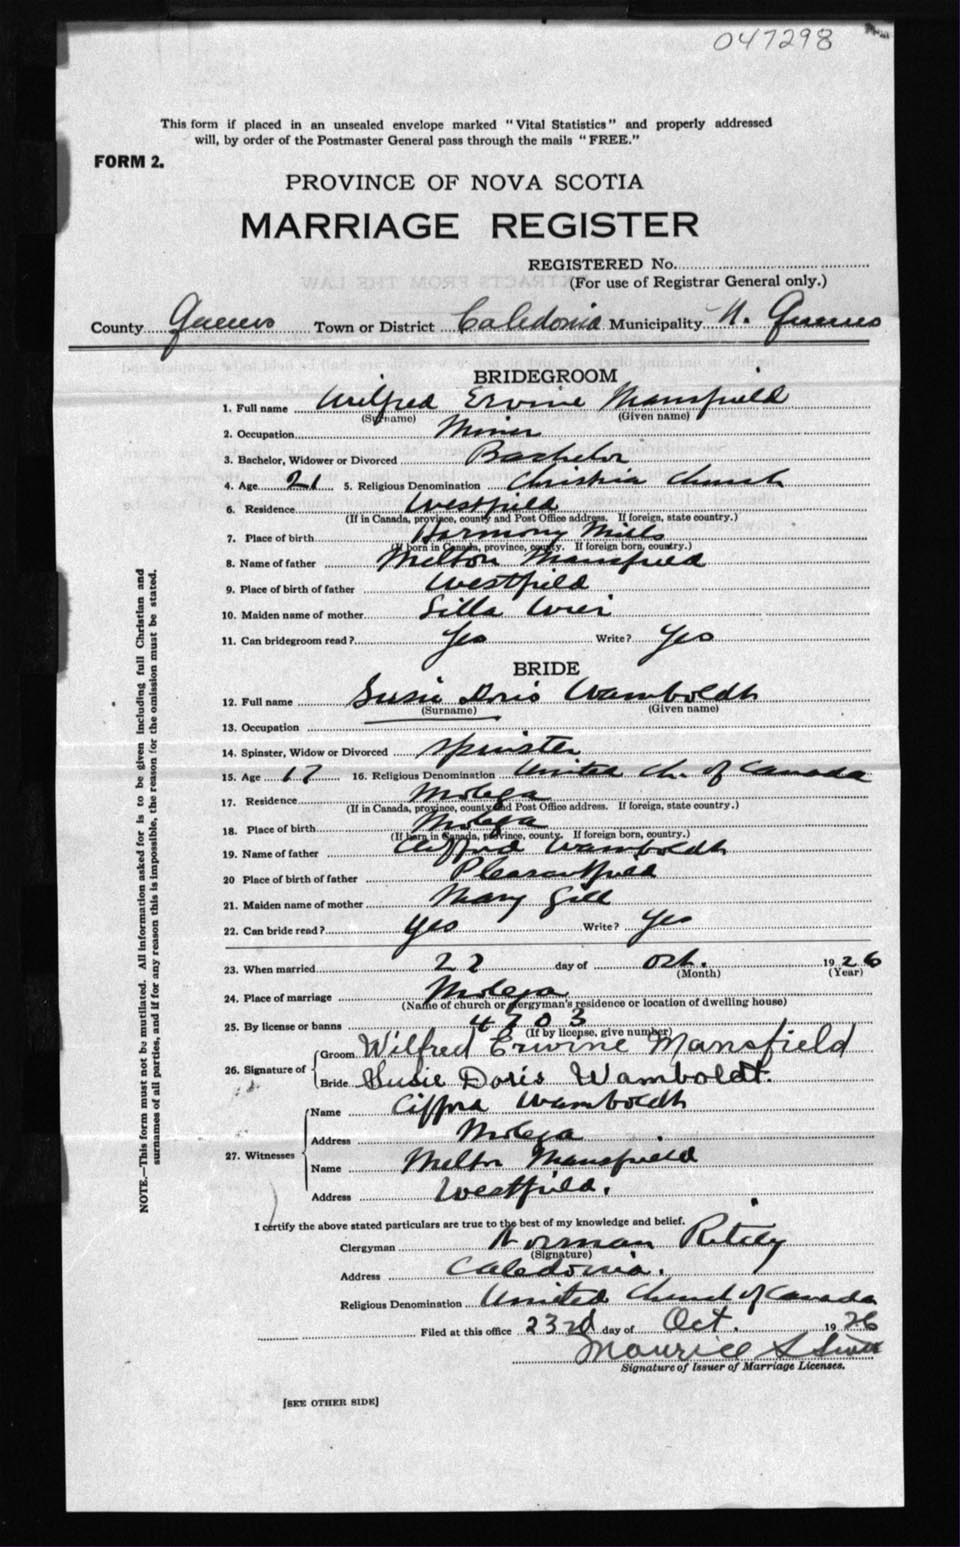 047298
This form if placed in an unsealed envelope marked "Vital Statistics" and properly addressed
will, by order of the Postmaster General pass through the mails "FREE."
FORM 2.
PROVINCE OF NOVA SCOTIA
MARRIAGE REGISTER
REGISTERED No.
(For use of Registrar General only.)
County Queens Town or District Caledonia Municipality N. Queens
BRIDEGROOM
1. Full name Wilfred Ervine Mansfield
(Surname) (Given name)
2. Occupation Miner
3. Bachelor, Widower or Divorced Bachelor
4. Age 21 5. Religious Denomination Christian Church
6. Residence Westfield
(If in Canada, province, county and Post Office address. If foreign, state country.)
7. Place of birth Harmony Mills
(If born in Canada, province, county. If foreign born, country.)
8. Name of father Melton Mansfield
9. Place of birth of father Westfield
10. Maiden name of mother Silla Wier
11. Can bridegroom read? Yes Write? Yes
BRIDE
12. Full name Susie Doris Wamboldt
(Surname) (Given name)
13. Occupation
14. Spinster, Widow or Divorced Spinster
15. Age 17 16. Religious Denomination United Ch. of Canada
17. Residence Molega
(If in Canada, province, county and Post Office address. If foreign, state country.)
18. Place of birth Molega
(If born in Canada, province, county. If foreign born, country.)
19. Name of father Clifford Wamboldt
20 Place of birth of father Pleasantfield
21. Maiden name of mother Mary Gill
22. Can bride read? Yes Write? Yes
23. When married 22 day of Oct. 1926
(Month) (Year)
24. Place of marriage Molega
(Name of church or clergyman's residence or location of dwelling house)
25. By license or banns 4703
(If by license, give number)
26. Signature of Groom Wilfred Erwine Mansfield
Bride Susie Doris Wamboldt.
27. Witnesses Name Clifford Wamboldt
Address Molega
Name Melton Mansfield
Address Westfield.
I certify the above stated particulars are true to the best of my knowledge and belief.
Clergyman Norman
(Signature)
Address Caledonia.
Religious Denomination United Church of Canada
Filed at this office 23rd day of Oct. 1926
Maurice S
Signature of Issuer of Marriage Licenses.
[SEE OTHER SIDE]
NOTE.—This form must not be mutilated. All information asked for is to be given including full Christian and
surnames of all parties, and if for any reason this is impossible, the reason for the omission must be stated.